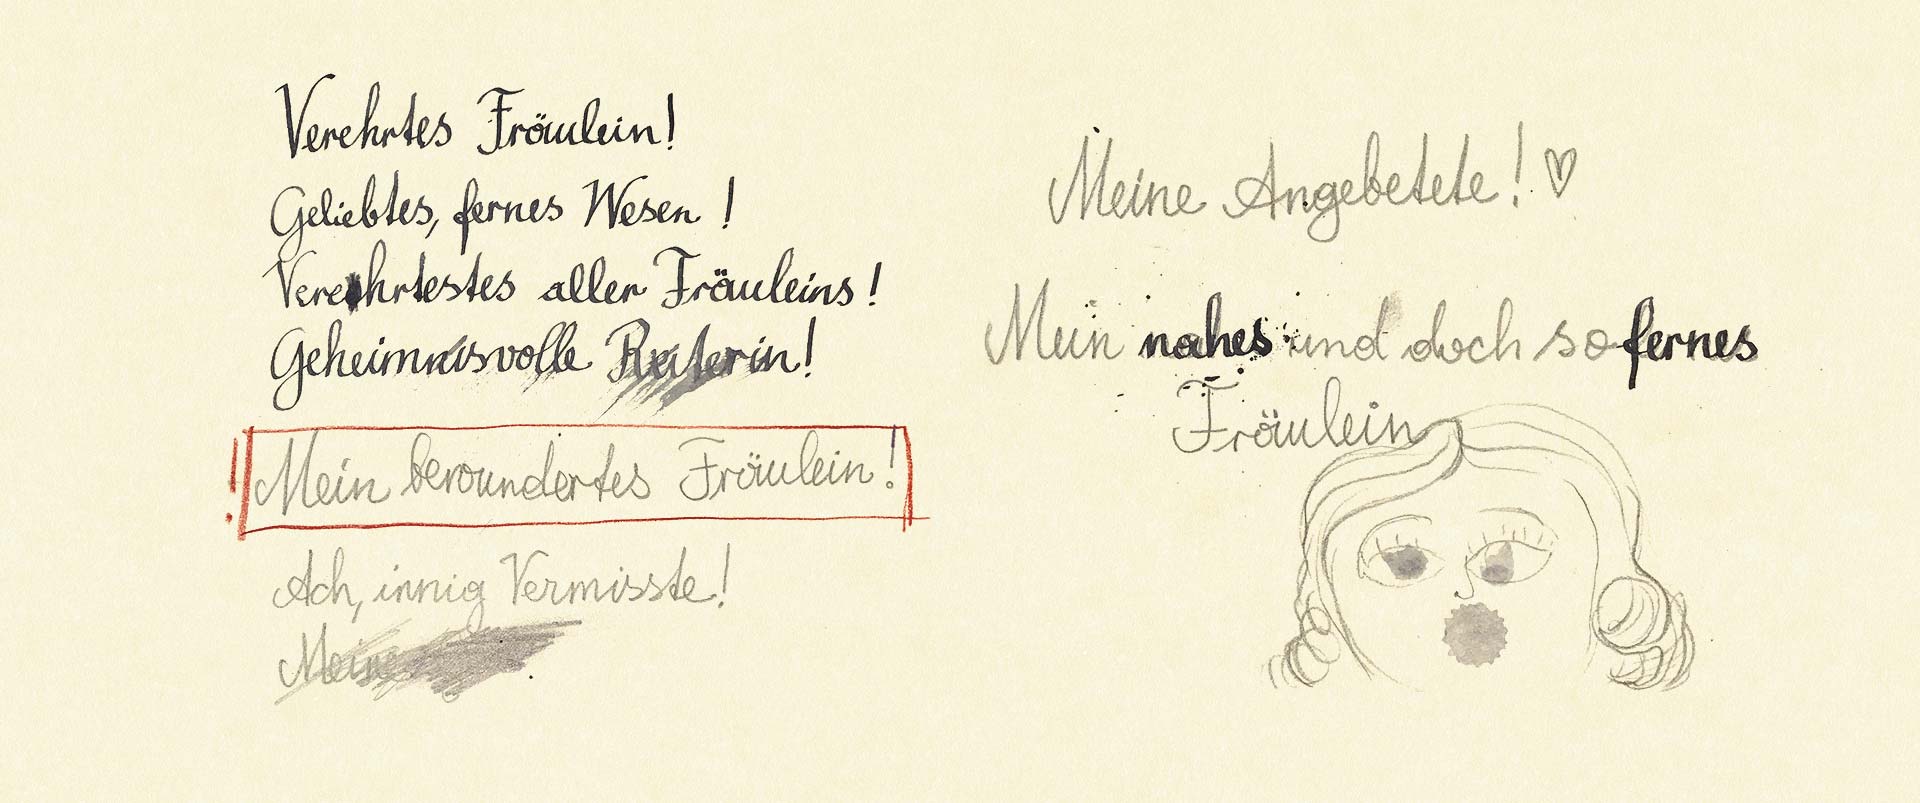 Verehrtes Fräulein!
Geliebtes, fernes Wesen!
Verehrtestes aller Fräuleins!
Geheimnisvolle Reiterin!
! Mein bewundertes Fräulein!
Ach, innig Vermisste!
Meine
Meine Angebetete! ♡
Mein nahes und doch so fernes
Fräulein